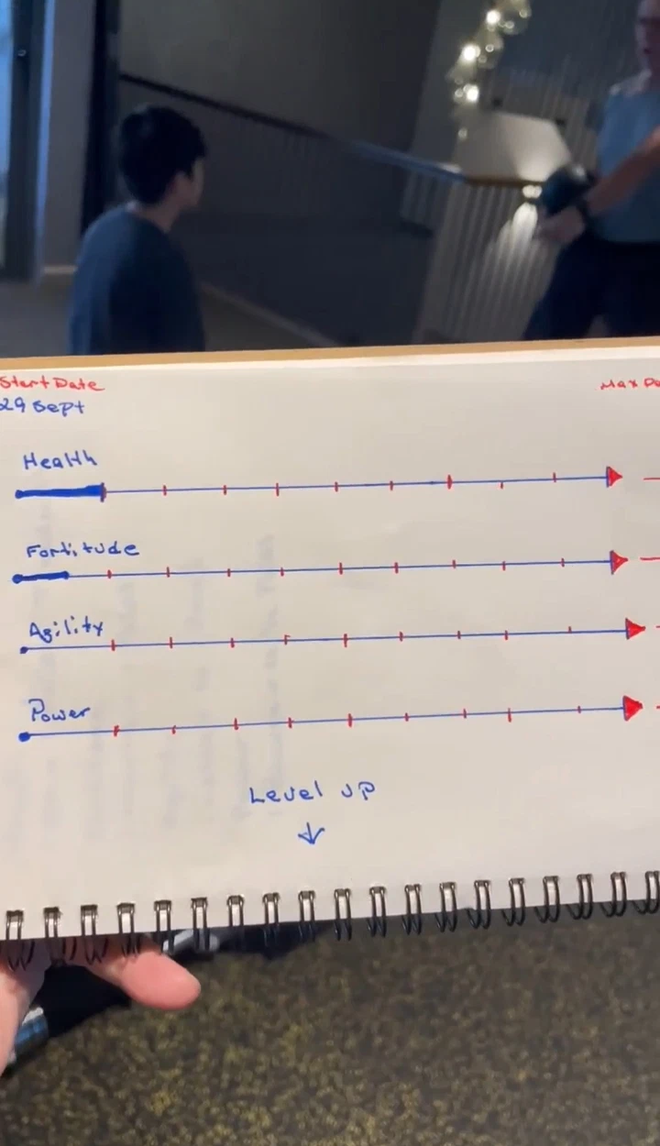 Start Date
29 Sept
Max
Health
Fortitude
Agility
Power
Level up